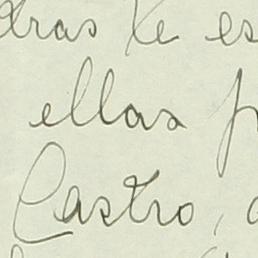 dras te es
ellas p
Castro,